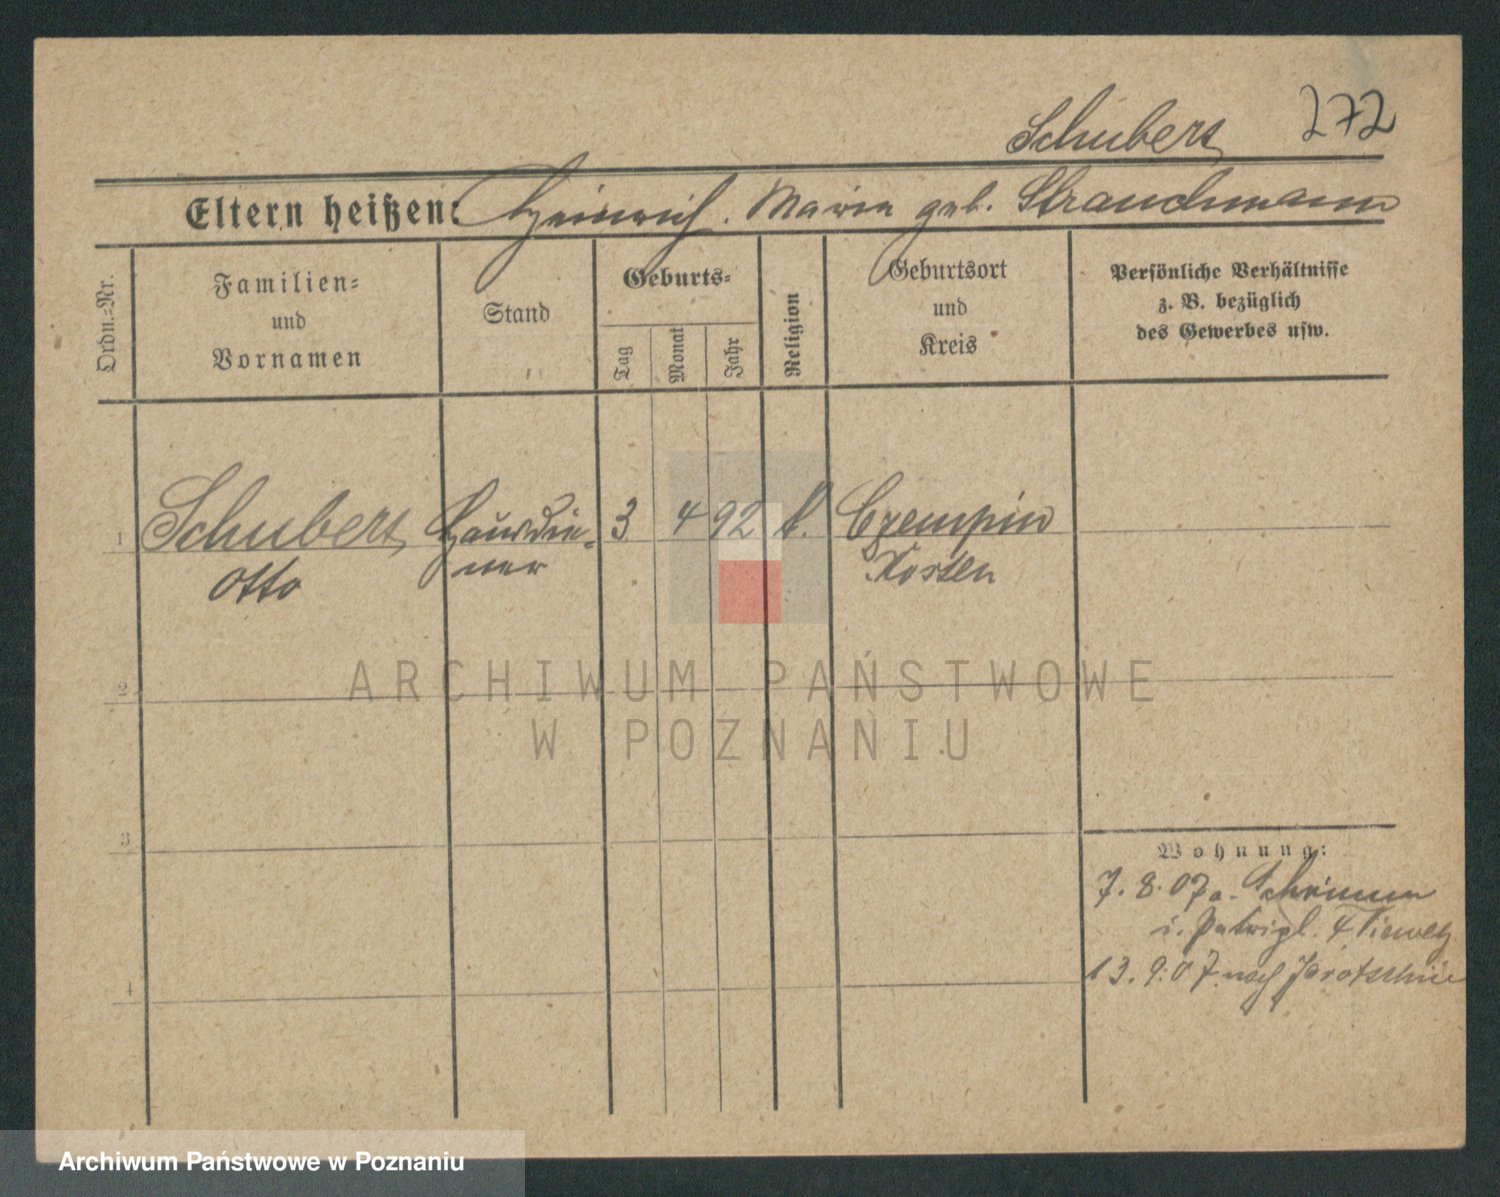 Schubert 272
Eltern heißen: Heinrich. Maria geb. Strauchmann
Ordn.-Nr.
Familien-
und
Vornamen
Stand
Geburts-
Tag
Monat
Jahr
Religion
Geburtsort
und
Kreis
Persönliche Verhältnisse
z. B. bezüglich
des Gewerbes usw.
1 Schubert, Hausdie- 3 4 92 k. Czempin
Otto ner Kosten
2
ARCHIWUM PAŃSTWOWE
W POZNANIU
3
Wohnung:
7. 8. 07 a. Schrimm
i.
13. 9. 07 nach Jarotschin
4
Archiwum Państwowe w Poznaniu